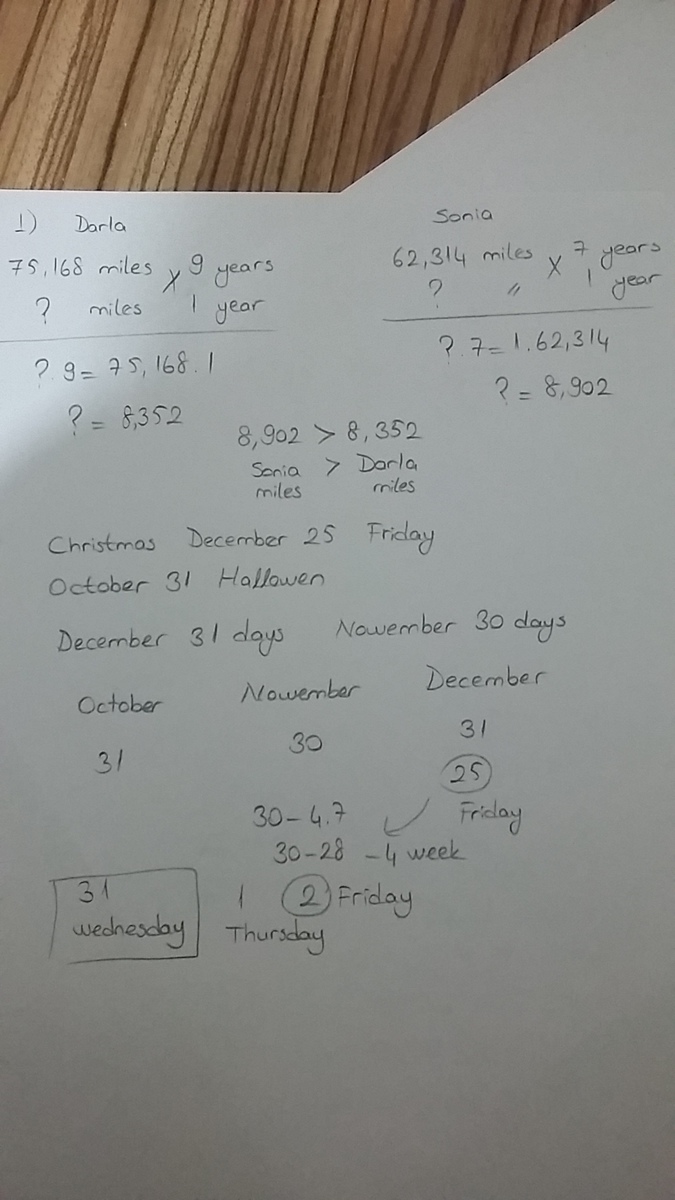 1) Darla
75,168 miles x 9 years
? miles 1 year
? . 9 = 75,168 . 1
? = 8,352
Sonia
62,314 miles x 7 years
? " 1 year
? . 7 = 1 . 62,314
? = 8,902
8,902 > 8,352
Sonia > Darla
miles miles
Christmas December 25 Friday
October 31 Hallowen
December 31 days Nowember 30 days
October Nowember December
31 30 31
25
30 - 4.7 Friday
30 - 28 - 4 week
31 1 2 Friday
wednesday Thursday